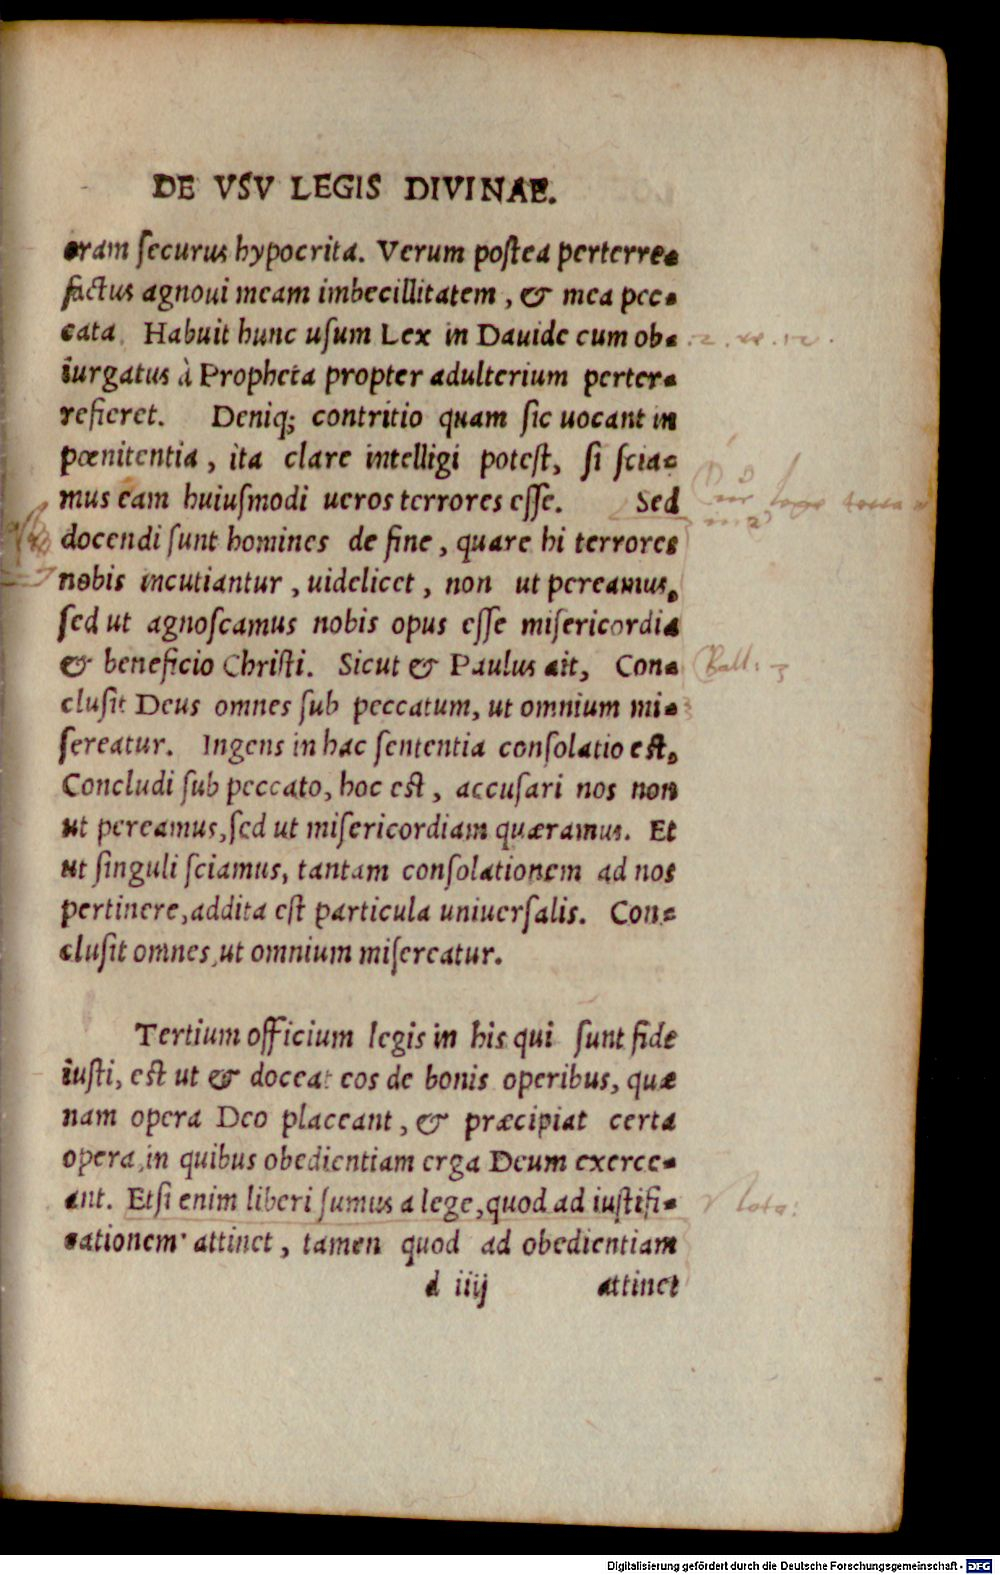 DE VSV LEGIS DIVINAE.
eram ſecurus hypocrita. Verum poſtea perterre-
factus agnoui meam imbecillitatem, & mea pec-
cata. Habuit hunc uſum Lex in Dauide cum ob-
iurgatus à Propheta propter adulterium perter-
refieret. Deniq; contritio quam ſic uocant in
pœnitentia, ita clare intelligi poteſt, ſi ſcia-
mus eam huiuſmodi ueros terrores eſſe. Sed
docendi ſunt homines de fine, quare hi terrores
nobis incutiantur, uidelicet, non ut pereamus,
ſed ut agnoſcamus nobis opus eſſe miſericordia
& beneficio Chriſti. Sicut & Paulus ait, Con-
cluſit Deus omnes ſub peccatum, ut omnium mi-
ſereatur. Ingens in hac ſententia conſolatio eſt,
Concludi ſub peccato, hoc eſt, accuſari nos non
ut pereamus, ſed ut miſericordiam quæramus. Et
ut ſinguli ſciamus, tantam conſolationem ad nos
pertinere, addita eſt particula uniuerſalis. Con-
cluſit omnes, ut omnium miſereatur.
Tertium officium legis in his qui ſunt fide
iuſti, eſt ut & doceat eos de bonis operibus, quæ
nam opera Deo placeant, & præcipiat certa
opera, in quibus obedientiam erga Deum exerce-
ant. Etſi enim liberi ſumus a lege, quod ad iuſtifi-
cationem attinet, tamen quod ad obedientiam
d iiij attinet
Gall: 3
Nota:
Digitalisierung gefördert durch die Deutsche Forschungsgemeinschaft - DFG